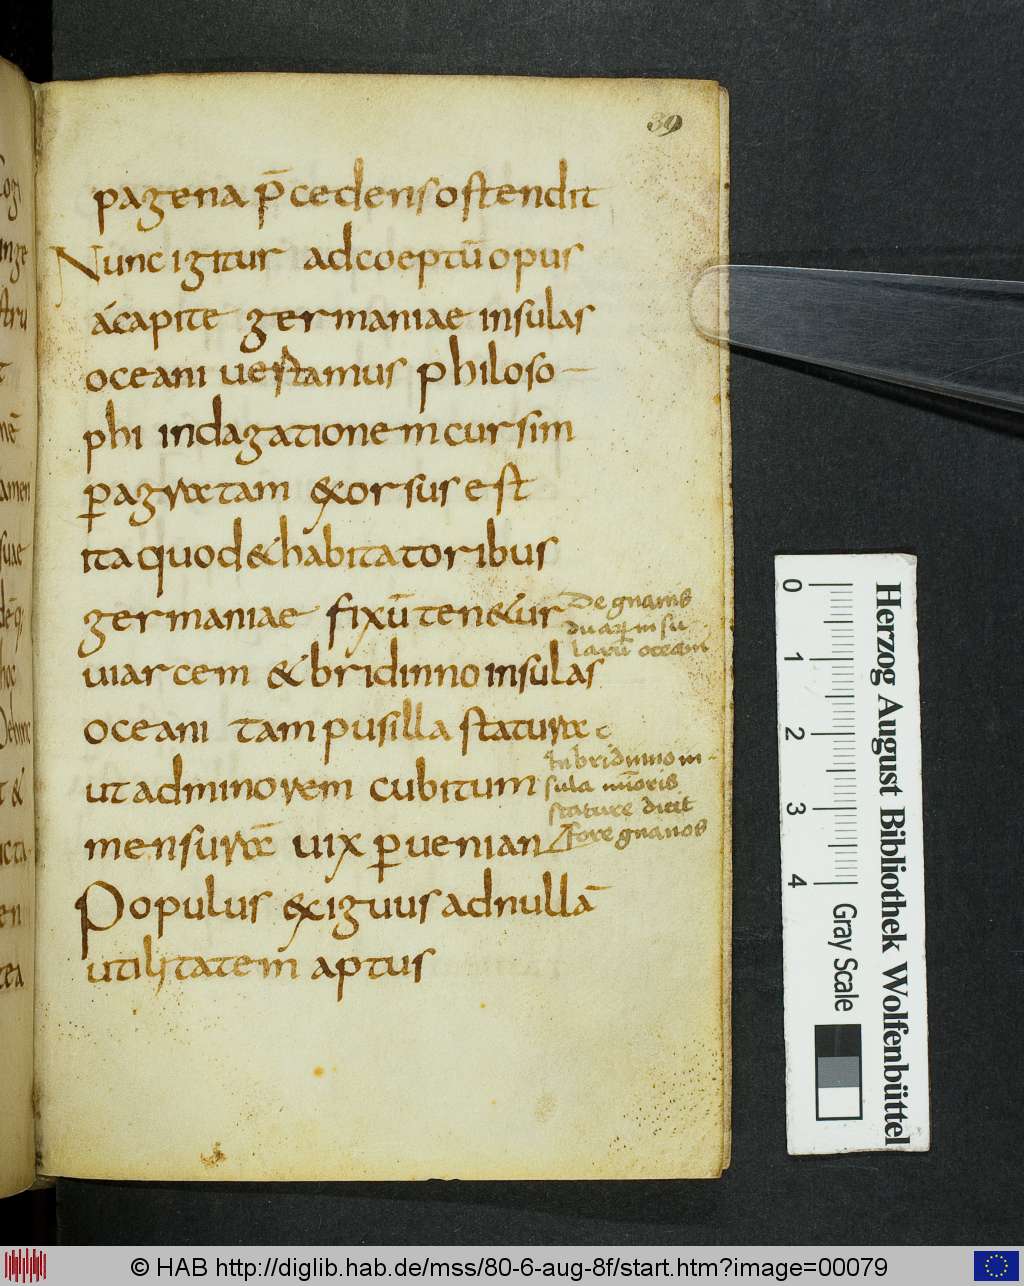 39
pagena p̄cedens ostendit
Nunc igitur ad coeptū opus
a capite germaniae insulas
oceani uestamus philoso-
phi indagatione in cursim
ꝑ agrata m exorsus est
ita quod & habitatoribus
germaniae fixū ten&ur
uiarcem & bridinno insulas
oceani tam pusilla statura
ut ad minorem cubitum
mensurā uix ꝑuenian
Populus exiguus ad nullā
utilitatem aptus
De gnanis
duaꝝ insu
larū oceani
In bridinno in-
sula mīoris
stature dicit
fore gnanos
0 1 2 3 4
Gray Scale
Herzog August Bibliothek Wolfenbüttel
© HAB http://diglib.hab.de/mss/80-6-aug-8f/start.htm?image=00079